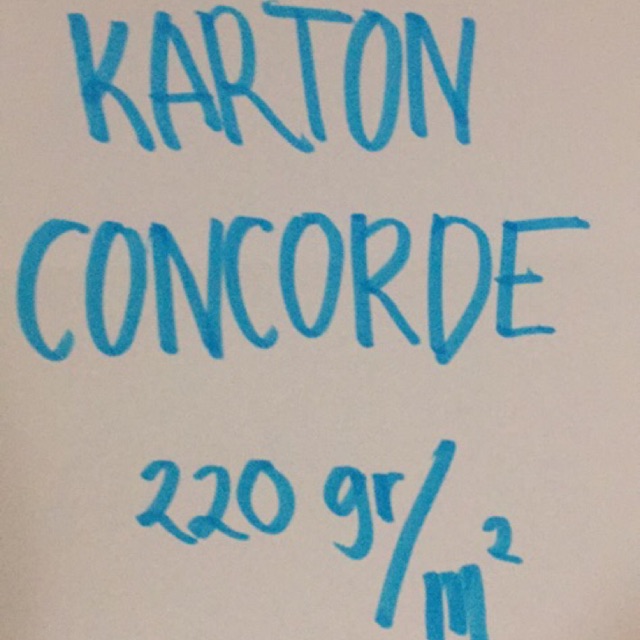 KARTON
CONCORDE
220 gr/m²